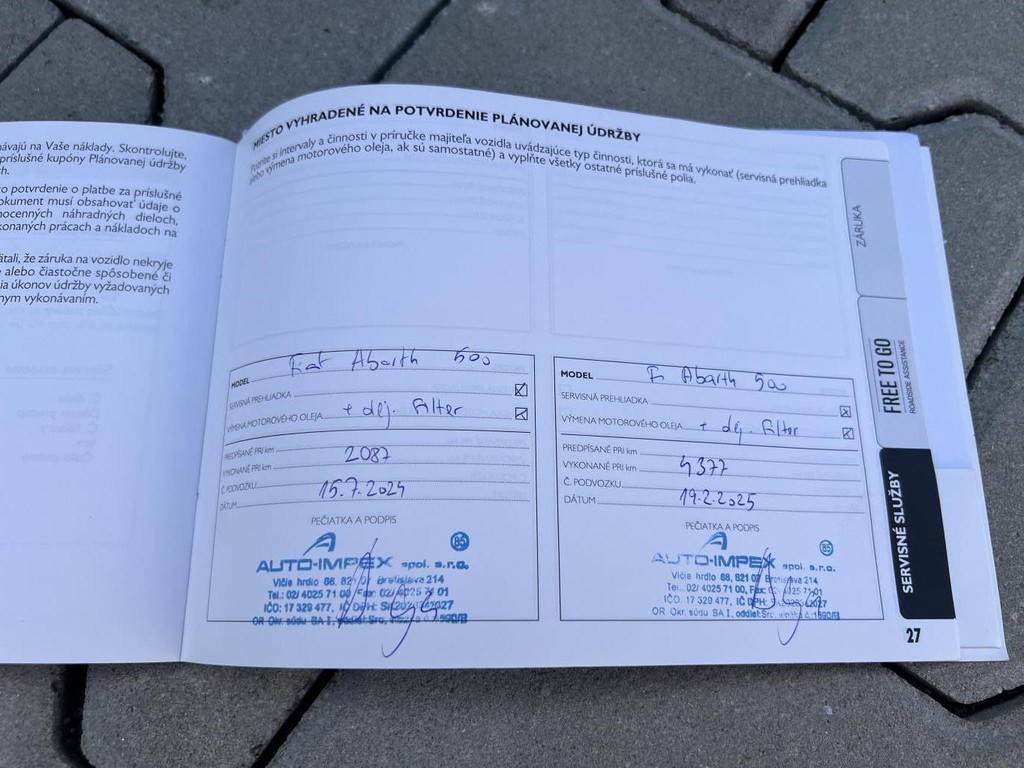 ávajú na Vaše náklady. Skontrolujte,
príslušné kupóny Plánovanej údržby
h.
o potvrdenie o platbe za príslušné
okument musí obsahovať údaje o
nocenných náhradných dieloch,
konaných prácach a nákladoch na
ítali, že záruka na vozidlo nekryje
e alebo čiastočne spôsobené či
ia úkonov údržby vyžadovaných
nym vykonávaním.
MIESTO VYHRADENÉ NA POTVRDENIE PLÁNOVANEJ ÚDRŽBY
si intervaly a činnosti v príručke majiteľa vozidla uvádzajúce typ činnosti, ktorá sa má vykonať (servisná prehliadka
alebo výmena motorového oleja, ak sú samostatné) a vyplňte všetky ostatné príslušné polia.
MODEL Fiat Abarth 500
SERVISNÁ PREHLIADKA
VÝMENA MOTOROVÉHO OLEJA + olej. filter
PREDPÍSANÉ PRI km
VYKONANÉ PRI km 2087
Č. PODVOZKU
DÁTUM 15.7.2024
PEČIATKA A PODPIS
85
AUTO-IMPEX spol. s.r.o.
Vlčie hrdlo 68, 821 07 Bratislava 214
Tel.: 02/ 4025 71 00, Fax: 02/ 4025 71 01
IČO: 17 329 477, IČ DPH:
OR Okr. súdu BA I, oddiel:Sro, vložka č. 1590/B
MODEL F. Abarth 500
SERVISNÁ PREHLIADKA
VÝMENA MOTOROVÉHO OLEJA + olej. filter
PREDPÍSANÉ PRI km
VYKONANÉ PRI km 4377
Č. PODVOZKU
DÁTUM 19.2.2025
PEČIATKA A PODPIS
85
AUTO-IMPEX spol. s.r.o.
Vlčie hrdlo 68, 821 07 Bratislava 214
Tel.: 02/ 4025 71 00, Fax: 02/ 4025 71 01
IČO: 17 329 477, IČ DPH:
OR Okr. súdu BA I, oddiel:Sro, vložka č. 1590/B
ZÁRUKA
FREE TO GO
ROADSIDE ASSISTANCE
SERVISNÉ SLUŽBY
27